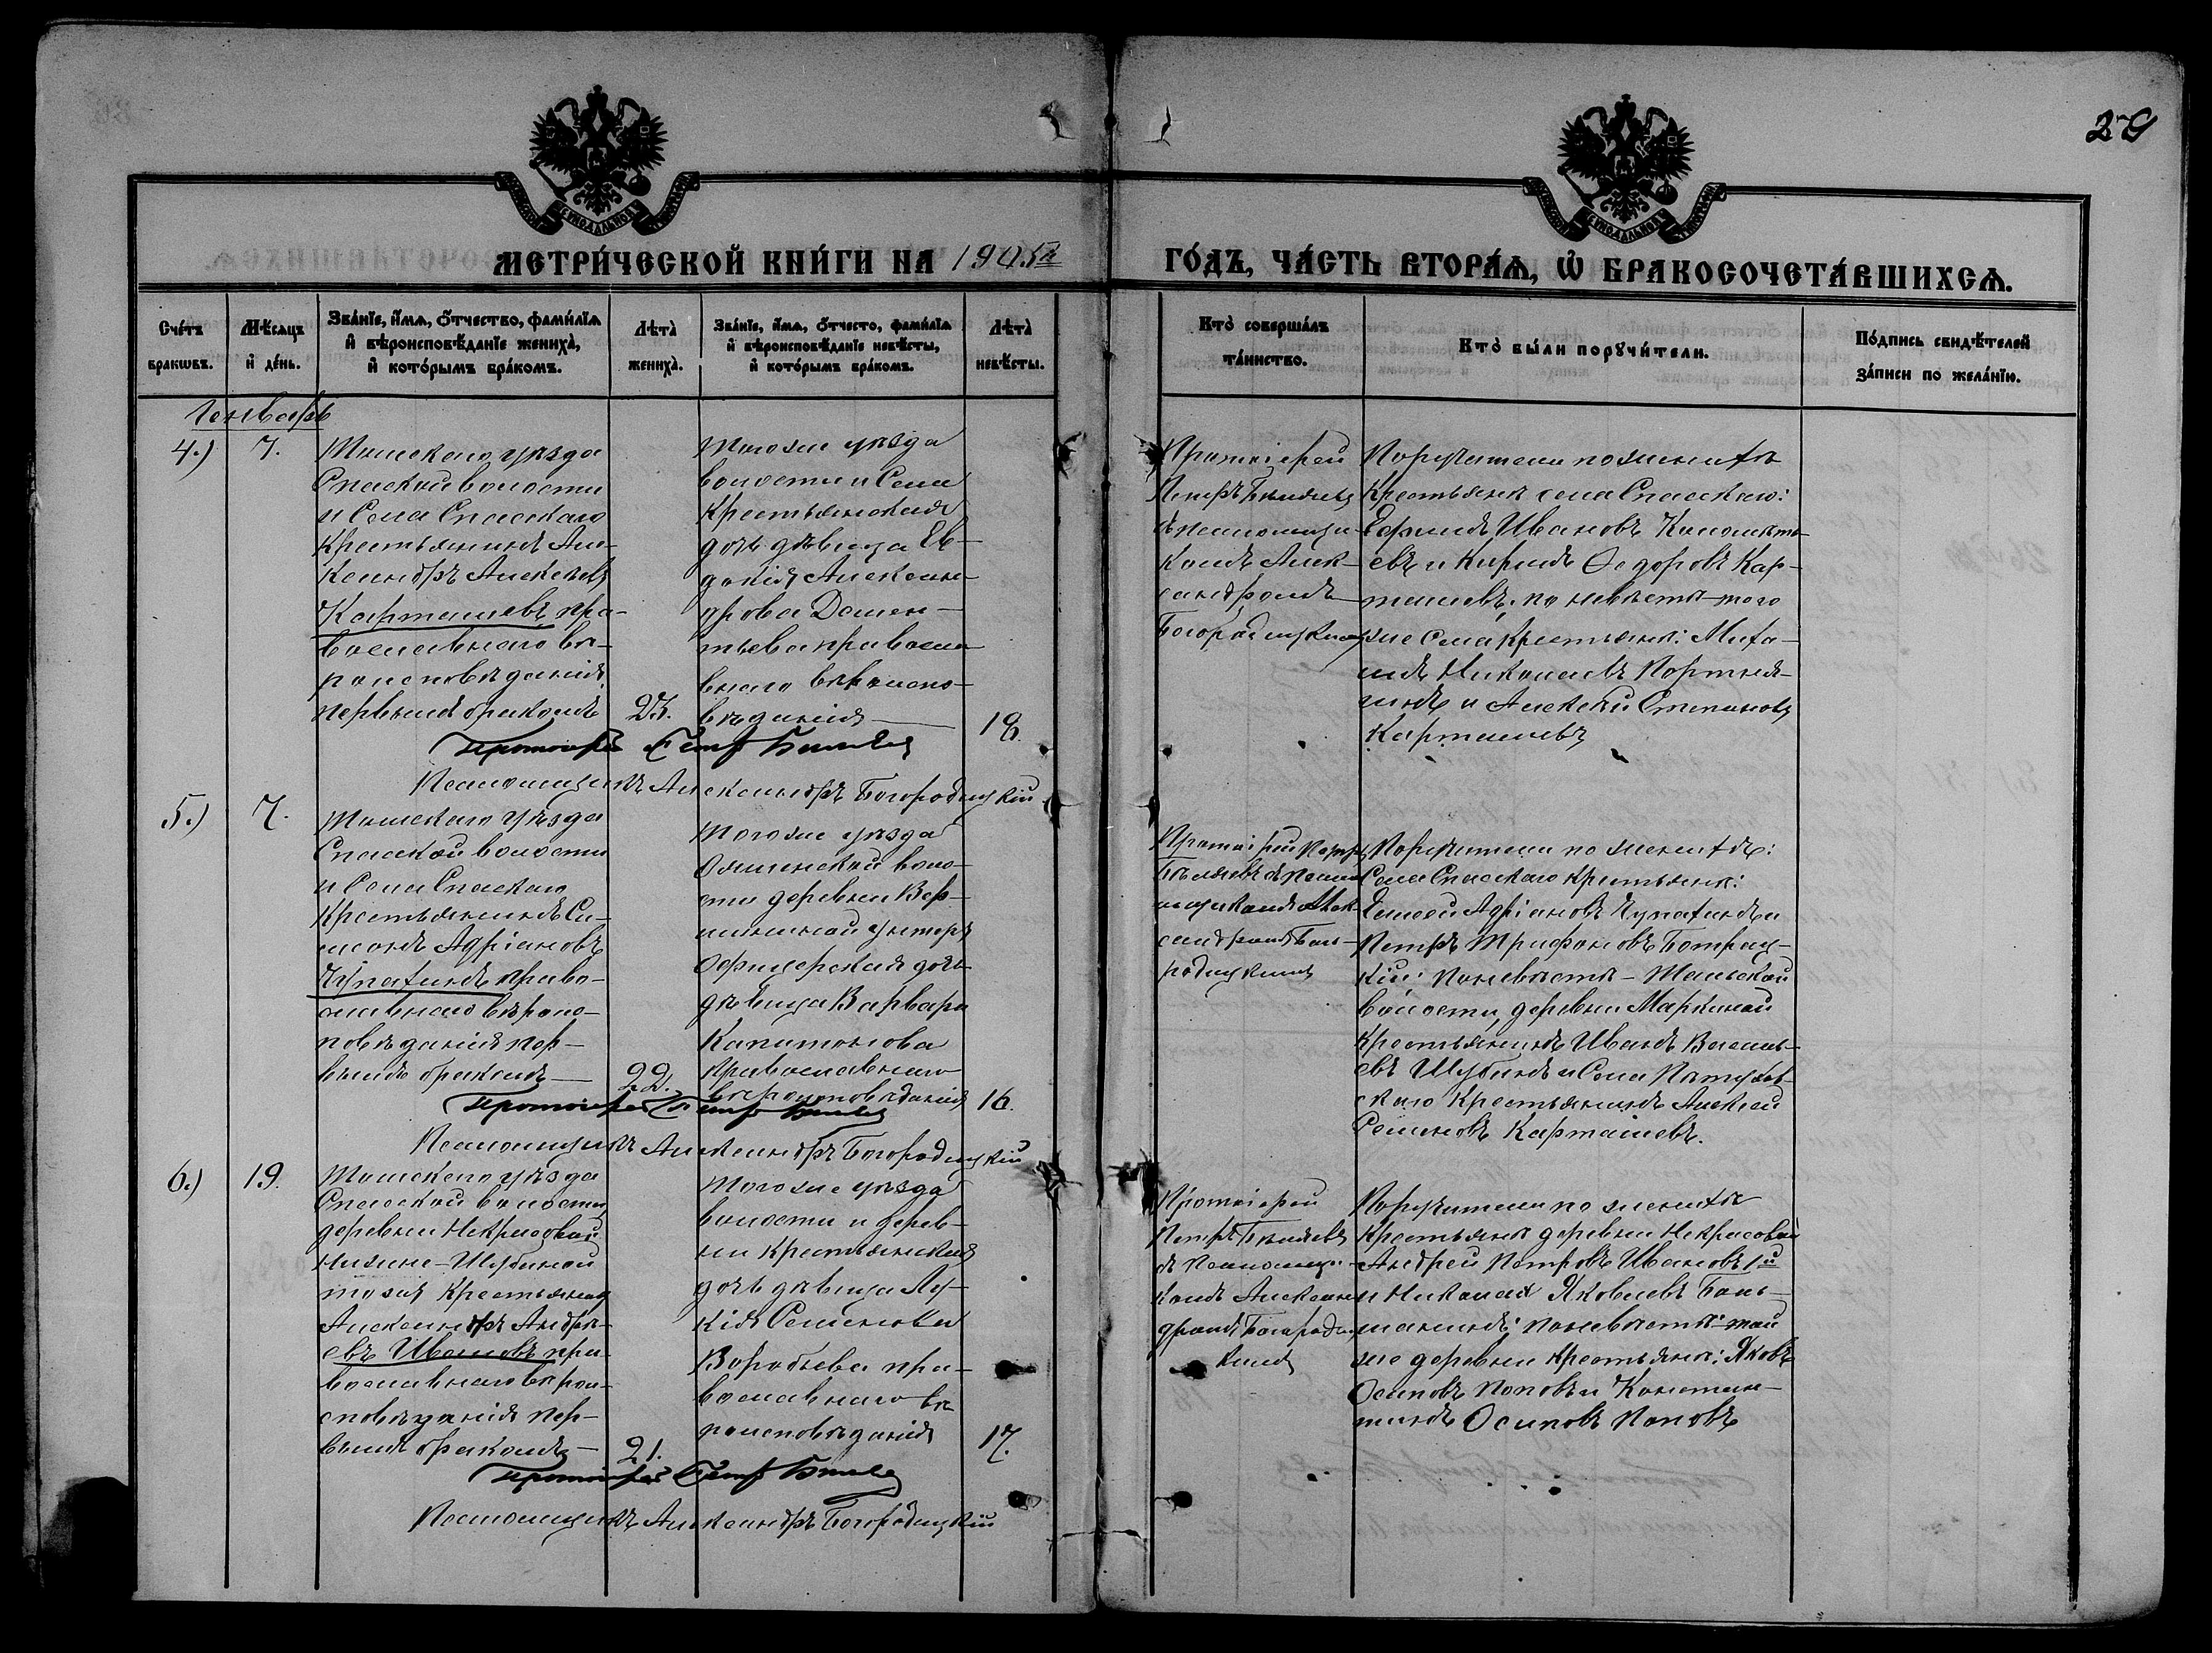 29
МЕТРИ́ЧЕСКОЙ КНИ́ГИ НА 1905й
ГО́ДЪ, ЧА́СТЬ ВТОРА́Ѧ, Ѽ БРАКОСОЧЕТА́ВШИХСѦ.
Сче́тъ бракѡвъ.
Мѣ́сѧцъ и҆ де́нь.
Зва́нїе, и҆́мѧ, ѻ҆́тчество, фами́лїѧ
и҆ вѣроисповѣ́данїе жениха̀,
и҆ кото́рымъ бра́комъ.
Лѣта̀ жениха̀.
Зва́нїе, и҆́мѧ, ѻ҆́тчесто, фами́лїѧ
и҆ вѣроисповѣ́данїе невѣ́сты,
и҆ кото́рымъ бра́комъ.
Лѣта̀ невѣ́сты.
Кто̀ соверша́лъ
та́инство.
Кто̀ бы́ли порꙋчи́тели.
По́дпись свидѣ́телей
за́писи по жела́нїю.
Генварь
4.)
7.
Томскаго уѣзда
Спасской волости
и Села Спасскаго
Крестьянинъ Але-
ксандръ Алексѣевъ
Карташевъ пра-
вославнаго вѣ-
роисповѣданія
первымъ бракомъ
25.
Тогоже уѣзда
волости и Села
Крестьянская
дочь дѣвица Ев-
докія Алексан-
дрова Домен-
тьева православ-
внаго вѣроиспо-
вѣданія
18.
Протоіерей
Петръ Бѣляевъ
съ псаломщи-
комъ Алек-
сандромъ
Богородицкимъ
Поручители по женихѣ
Крестьяне села Спасскаго:
Ефимъ Ивановъ
евъ и Кирилъ Ѳедоровъ Кар-
ташевъ, по невѣстѣ - того
же Села Крестьяне: Миха-
илъ Николаевъ Портня-
гинъ и Алексѣй Степановъ
Карташевъ
Протоіерей Петръ Бѣляевъ
Псаломщикъ Александръ Богородицкій
5.)
7.
Томскаго Уѣзда
Спасской волости
и Села Спасскаго
Крестьянинъ Си-
монъ Адріановъ
Чупахинъ право-
славнаго вѣроис-
повѣданія пер-
вымъ бракомъ
22.
Тогоже уѣзда
волос-
сти деревни Вер-
шининой унтеръ
Офицерская дочь
дѣвица Варвара
Капитонова
православнаго
вѣроисповѣданія
16.
Протоіерей Петръ
Бѣляевъ съ псалом-
щикомъ Алек-
сандромъ Бого-
родицкимъ
Поручители по женихѣ:
Села Спасскаго крестьяне:
Адріановъ Чупахинъ и
Петръ Трифоновъ
кій; по невѣстѣ -
волости, деревни Маркиной
Крестьянинъ Иванъ Василь-
евъ Шубинъ и Села
скаго Крестьянинъ Алексѣй
Семеновъ Карташевъ.
Протоіерей Петръ Бѣляевъ
Псаломщикъ Александръ Богородицкій
6.)
19.
Томскаго уѣзда
Спасской волости
деревни Некрасовой
Шубиной
тожъ Крестьянинъ
Александръ Андрѣ-
евъ Ивановъ пра-
вославнаго вѣрои-
сповѣданія пер-
вымъ бракомъ
21.
Тогоже уѣзда
волости и дерев-
ни Крестьянская
дочь дѣвица Лу-
кія Семенова
Воробьева пра-
вославнаго вѣ-
роисповѣданія
17.
Протоіерей
Петръ Бѣляевъ
съ Псаломщи-
комъ Алексан-
дромъ Богородиц-
кимъ
Поручители по женихѣ
Крестьяне деревни Некрасовой
Андрей Петровъ Ивановъ 1й
и Николай Яковлевъ
по невѣстѣ - той
же деревни крестьяне: Яковъ
Осиповъ Поповъ и Констан-
тинъ Осиповъ Поповъ
Протоіерей Петръ Бѣляевъ
Псаломщикъ Александръ Богородицкій